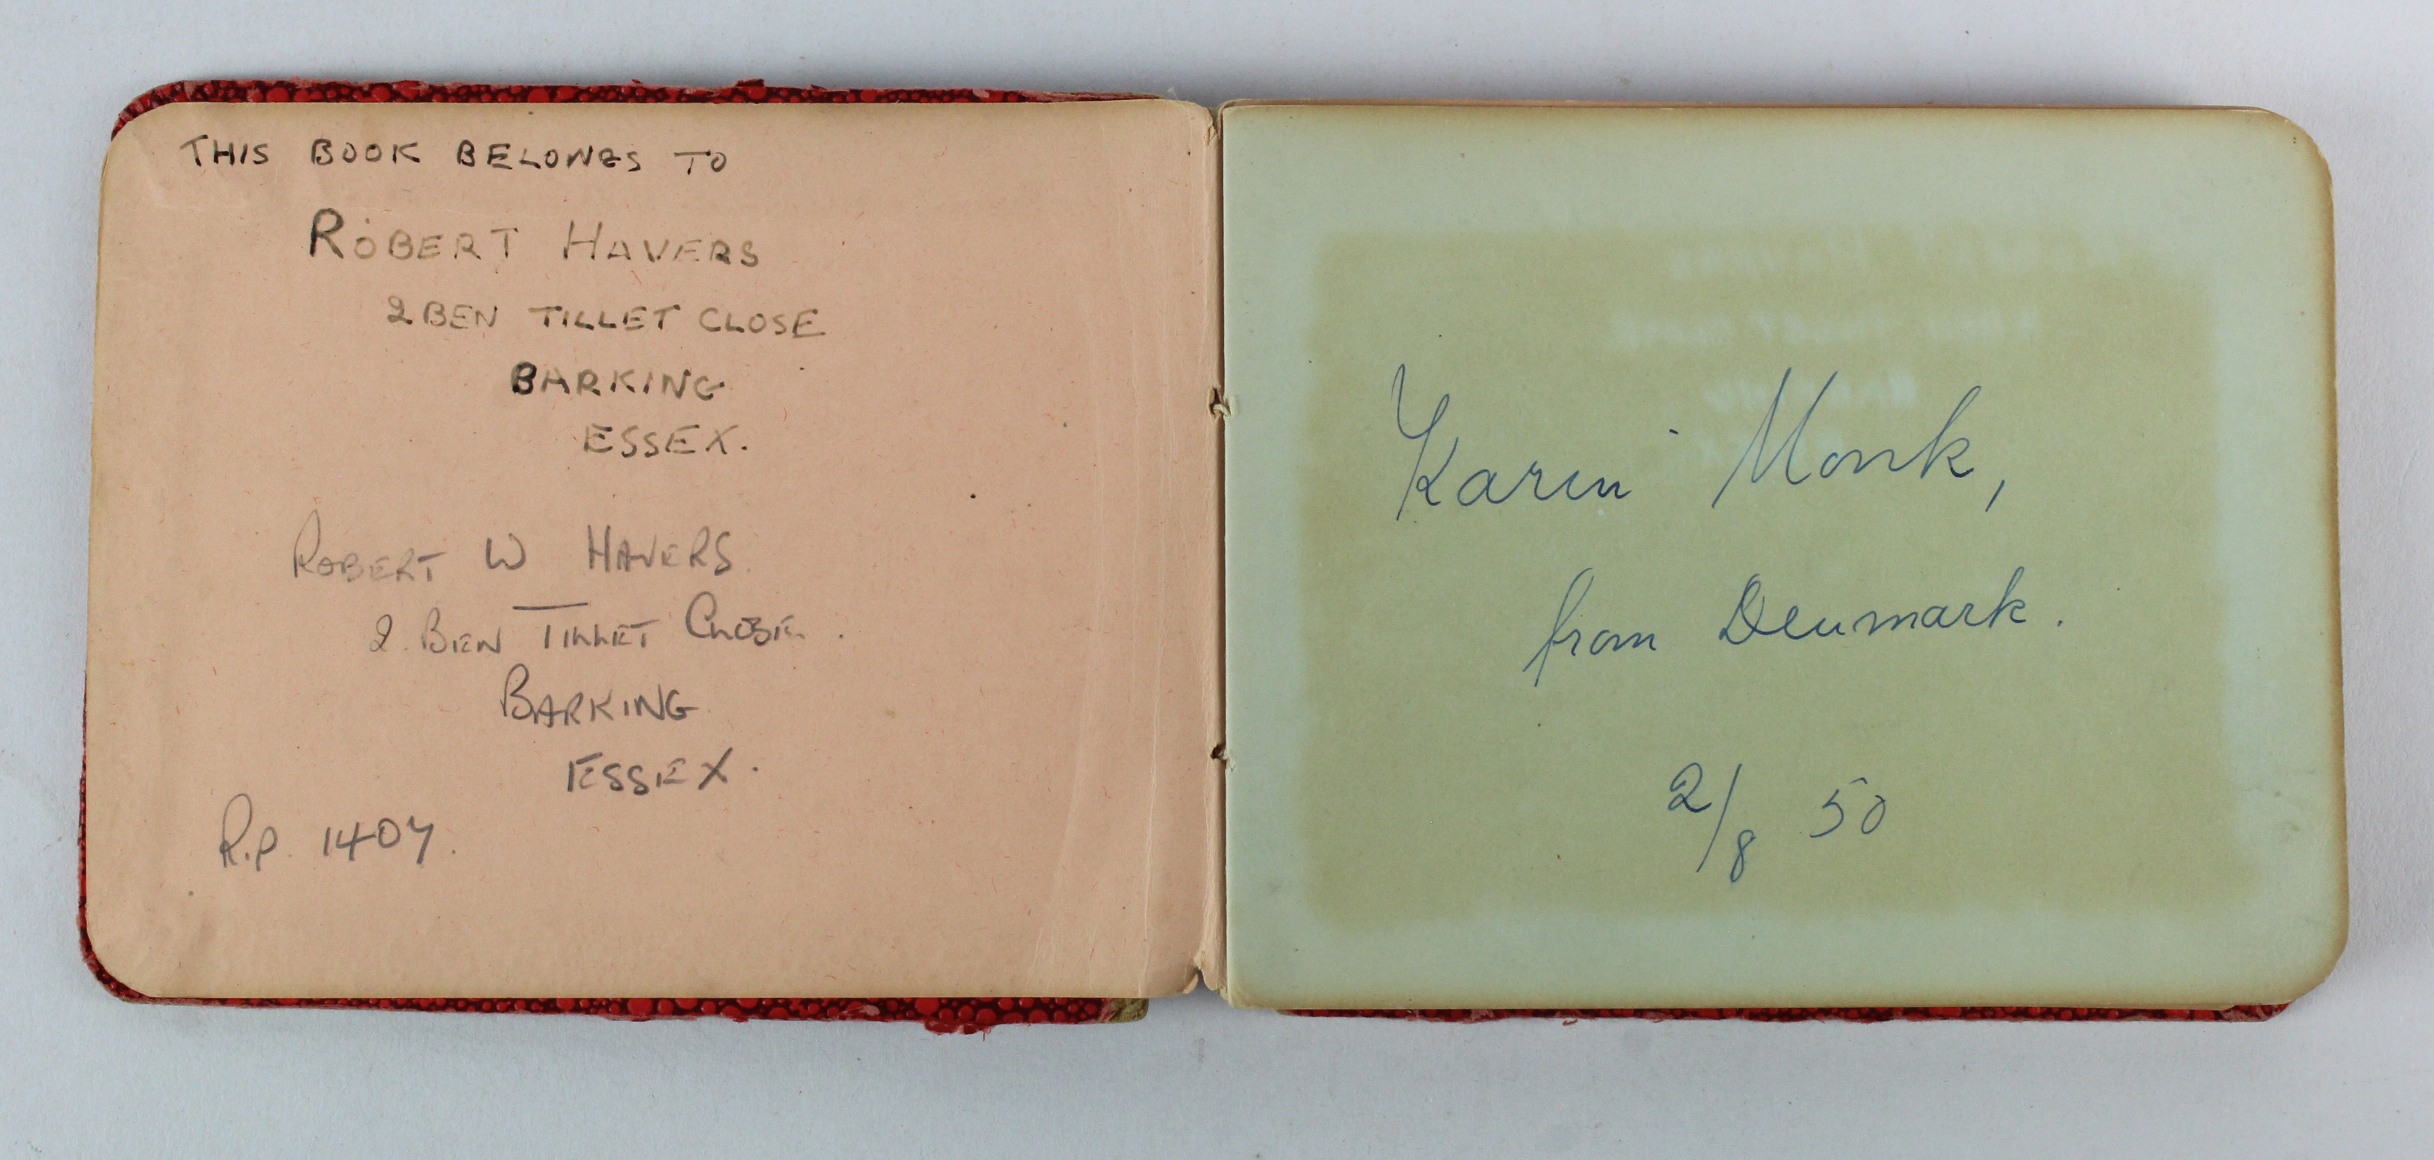 THIS BOOK BELONGS TO
ROBERT HAVERS
2 BEN TILLET CLOSE
BARKING
ESSEX.
ROBERT W HAVERS
2. BEN TILLET CLOSE.
BARKING
ESSEX.
R.P. 1407.
Karin Monk,
from Denmark.
2/8 50